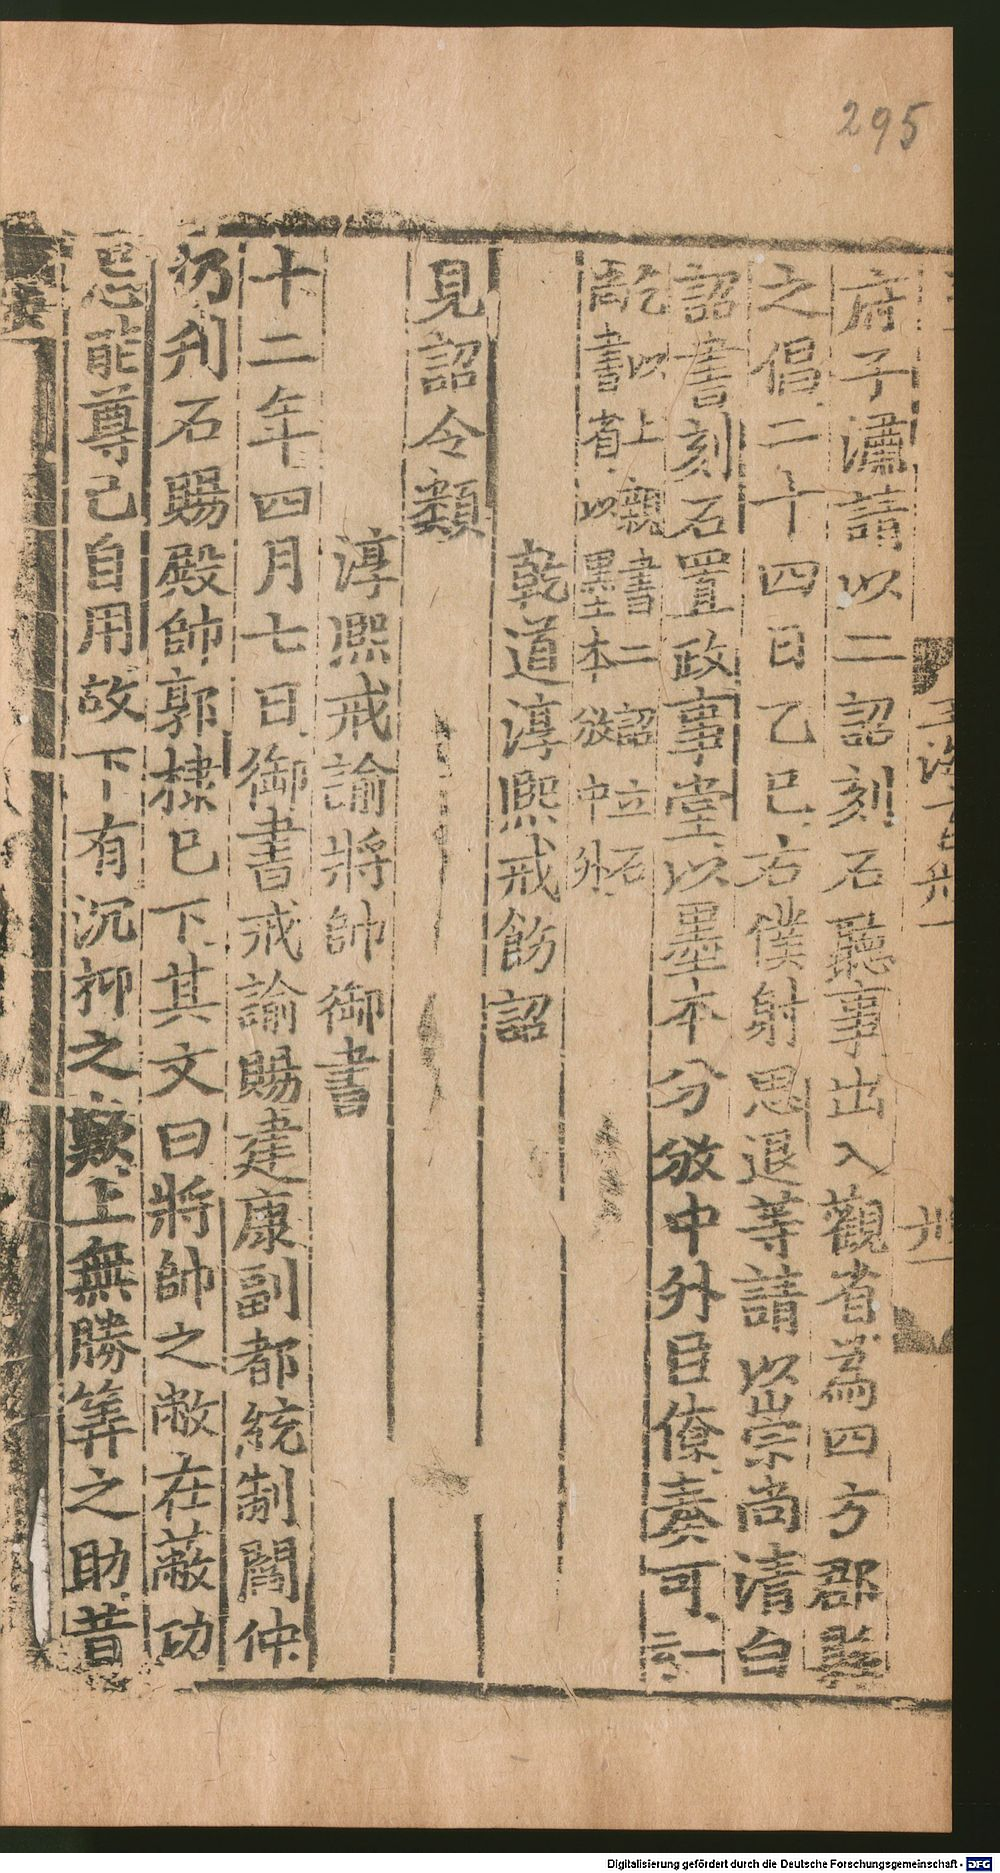 295
府子瀟請以二詔刻石聽事出入觀省為四方郡縣
之倡二十四日乙巳右僕射思退等請以崇尚清白
詔書刻石置政事堂以墨本分放中外臣僚奏可一
乾以上親書二詔立石
尚書省以墨本放中外
乾道淳熙戒飭詔
見詔令類
淳熙戒諭將帥御書
十二年四月七日御書戒諭賜建康副都統制閻仲
仍刋石賜殿帥郭棣已下其文曰將帥之敝在蔽功
忌能尊己自用故下有沉抑之歎上無勝筭之助昔
Digitalisierung gefördert durch die Deutsche Forschungsgemeinschaft - DFG